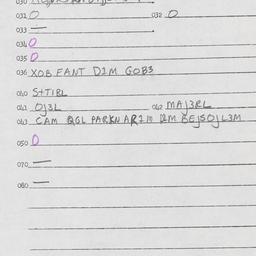 031 0 032 0
033 —
034 0
035 0
036 XOB FANT D1M GOB3
040 S+T1RL
041 OJ3L 042 MAJ3RL
043 CAM QGL PARKN AR210 12M BEJSOJL3M
050 0
070 —
080 —